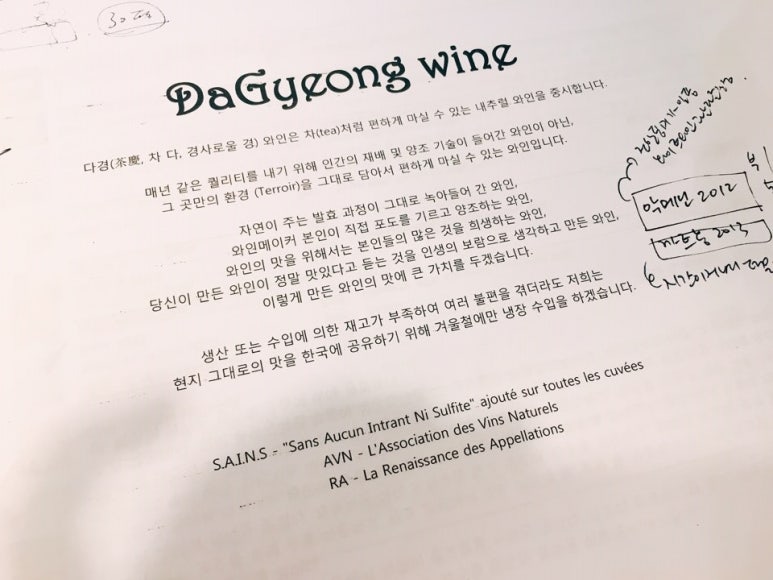 DaGyeong wine
다경(茶慶, 차 다, 경사로울 경) 와인은 차(tea)처럼 편하게 마실 수 있는 내추럴 와인을 중시합니다.
매년 같은 퀄리티를 내기 위해 인간의 재배 및 양조 기술이 들어간 와인이 아닌,
그 곳만의 환경 (Terroir)을 그대로 담아서 편하게 마실 수 있는 와인입니다.
자연이 주는 발효 과정이 그대로 녹아들어 간 와인,
와인메이커 본인이 직접 포도를 기르고 양조하는 와인,
와인의 맛을 위해서는 본인들의 많은 것을 희생하는 와인,
당신이 만든 와인이 정말 맛있다고 듣는 것을 인생의 보람으로 생각하고 만든 와인,
이렇게 만든 와인의 맛에 큰 가치를 두겠습니다.
생산 또는 수입에 의한 재고가 부족하여 여러 불편을 겪더라도 저희는
현지 그대로의 맛을 한국에 공유하기 위해 겨울철에만 냉장 수입을 하겠습니다.
S.A.I.N.S - "Sans Aucun Intrant Ni Sulfite" ajouté sur toutes les cuvées
AVN - L'Association des Vins Naturels
RA - La Renaissance des Appellations
2012
2013